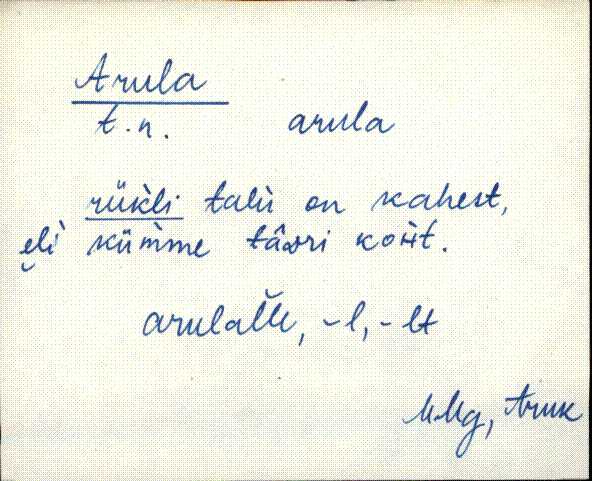 Arula
t. n. arula
rük̀li talù on kahest,
eli kümme tâvri koht.
arulalle, -l, -lt
MMg,